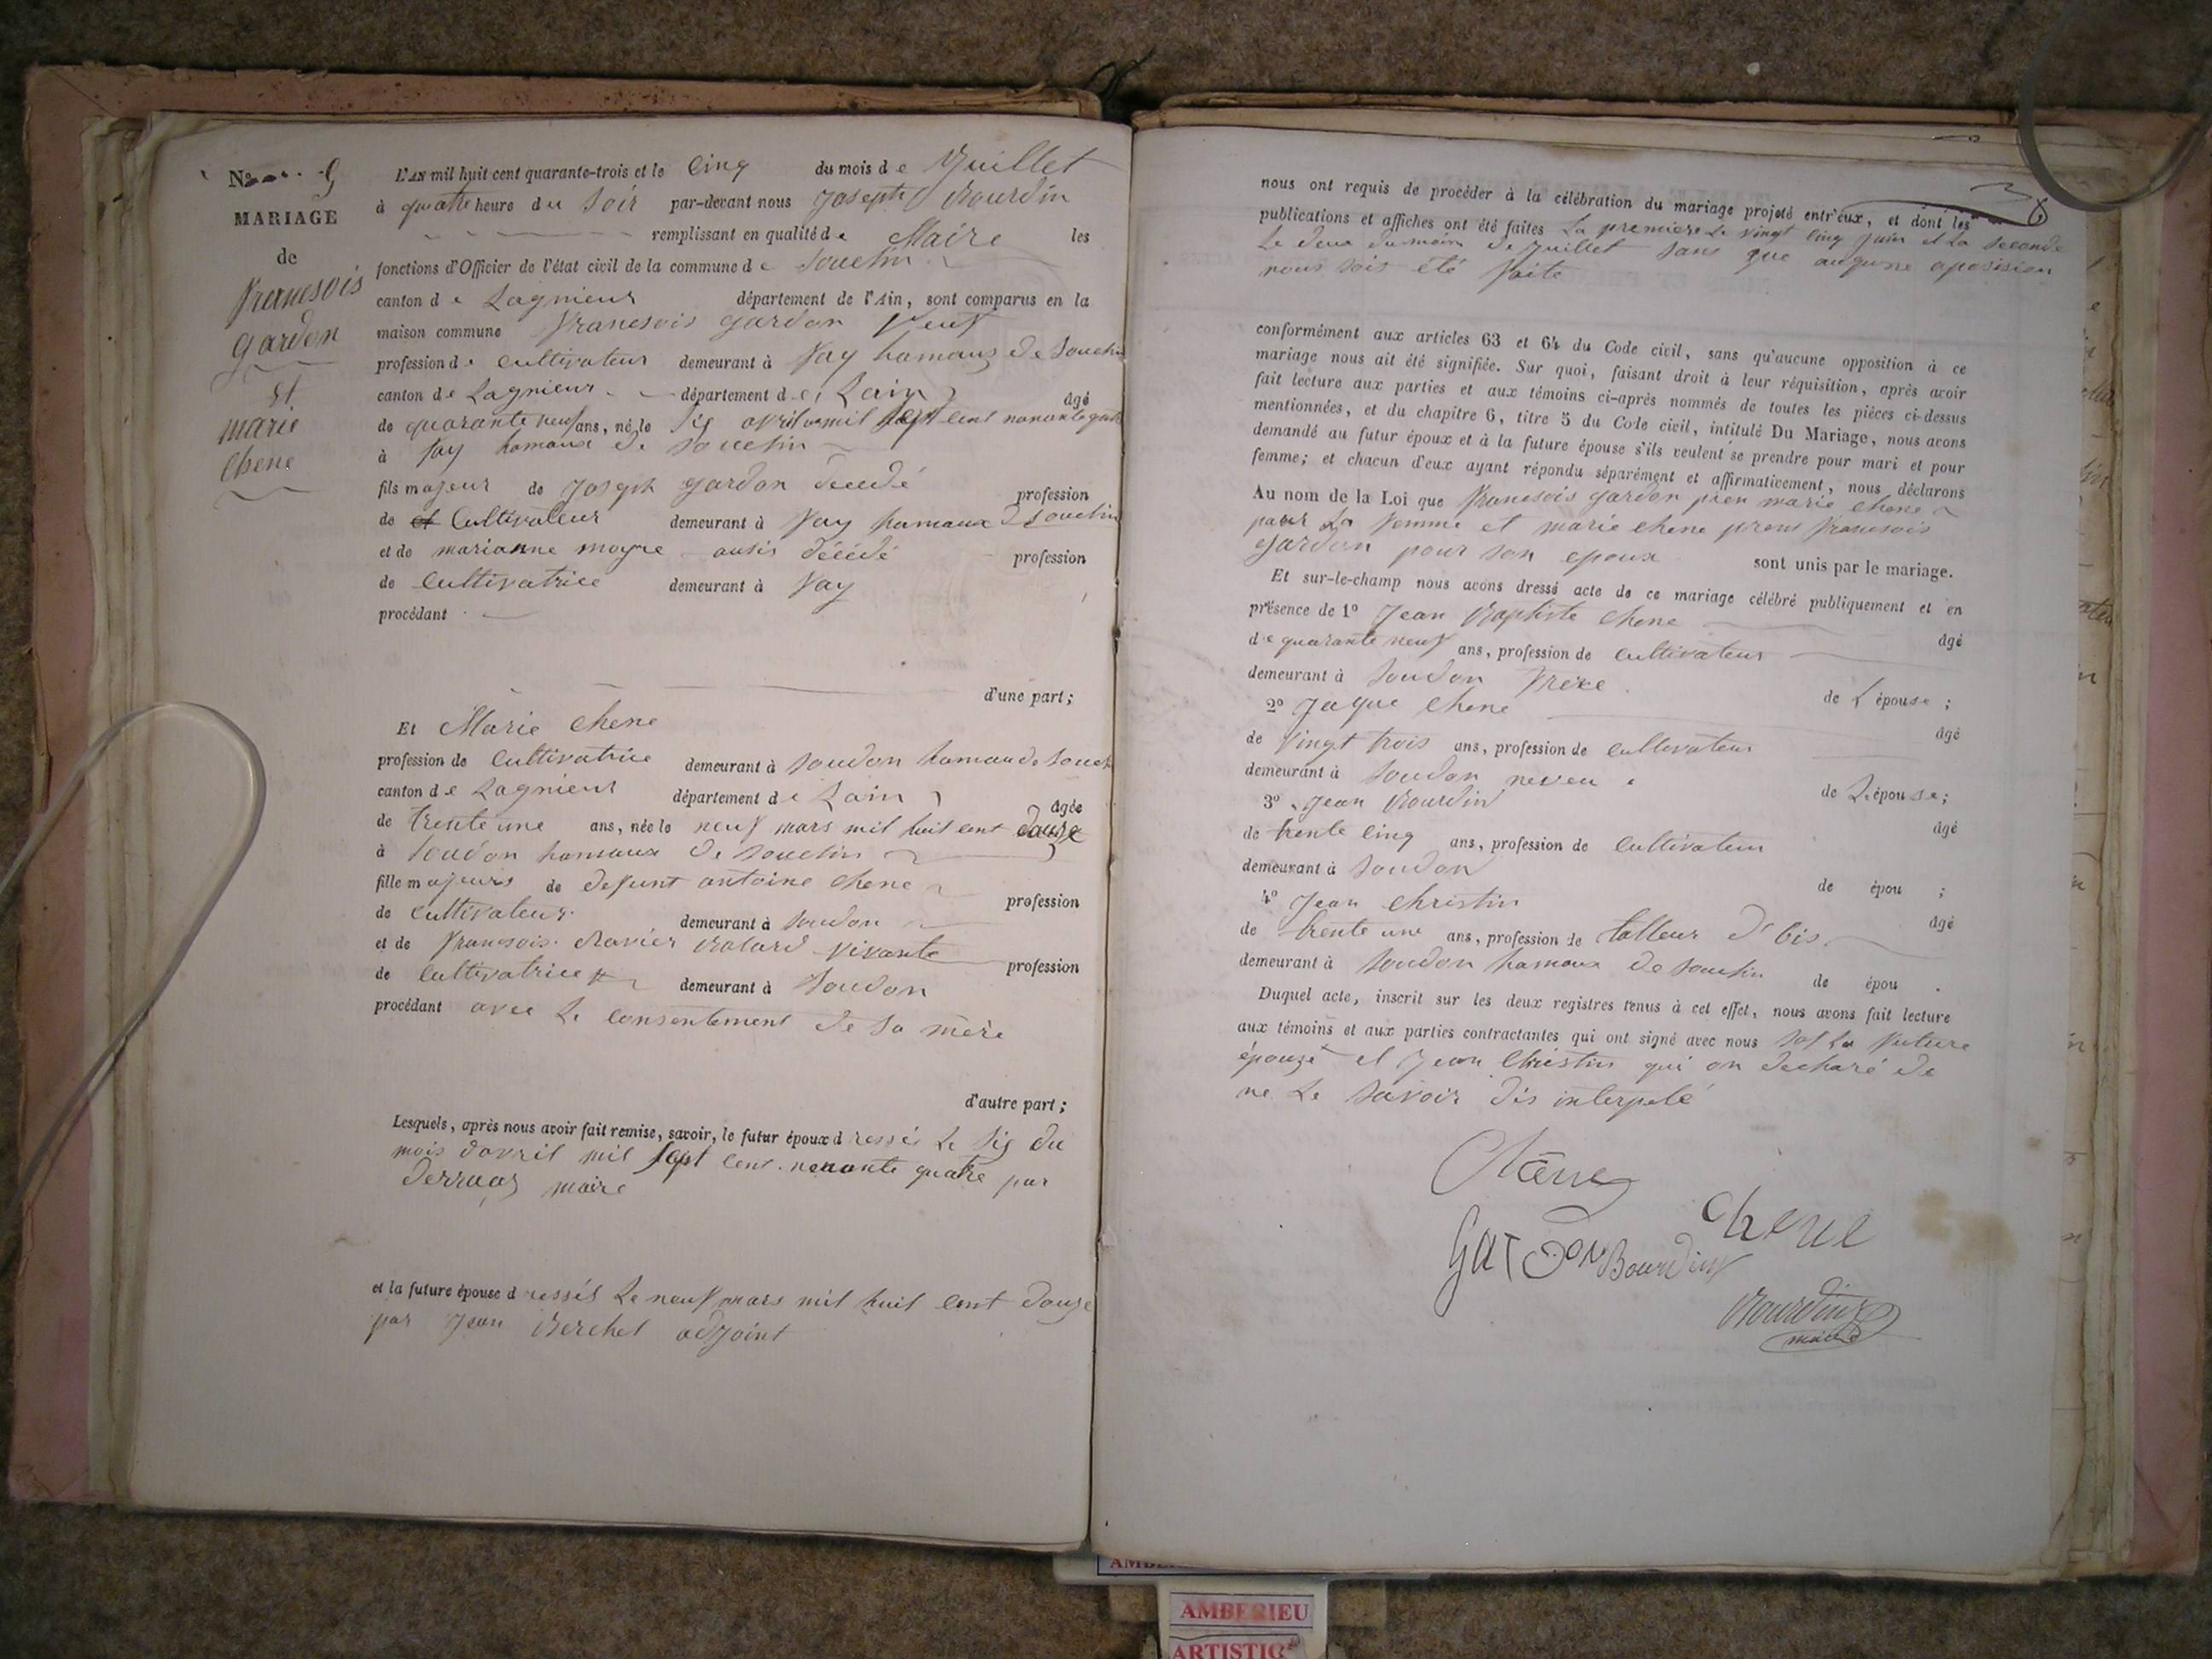 N° 9
MARIAGE
de
francsois
gardon
et
marie
chene
L'AN mil huit cent quarante-trois et le cinq du mois de Juillet
à quatre heure du soir par-devant nous Joseph Bourdin
remplissant en qualité de Maire les
fonctions d'Officier de l'état civil de la commune de Souclin
canton de Lagnieur département de l'Ain, sont comparus en la
maison commune francsois gardon veuf
profession de cultivateur demeurant à fay hamaux de Souclin
canton de Lagnieur département de Lain âgé
de quarante neuf ans, né le sis avril mil sept cent nonante quatre
à fay hamaux de souclin
fils majeur de Joseph gardon décedé profession
de et cultivateur demeurant à fay hamaux d souclin
et de marianne moyne ausis décédé profession
de cultivatrice demeurant à fay
procédant
d'une part;
Et Marie chene
profession de cultivatrice demeurant à soudon hamau de souclin
canton de Lagnieur département de Lain âgée
de trente une ans, née le neuf mars mil huit cent douze
à soudon hamaux de souclin
fille majeurs de defunt antoine chene profession
de cultivateur demeurant à soudon
et de francsois vivante profession
de cultivatrice demeurant à soudon
procédant avec le consentement de sa mère
d'autre part;
Lesquels, après nous avoir fait remise, savoir, le futur époux d ressés le sis du
mois davril mil sept cent nonante quatre par
maire
et la future épouse d ressés le neuf mars mil huit cent douze
par Jean Berchet adjoint
nous ont requis de procéder à la célébration du mariage projeté entr'eux, et dont les
publications et affiches ont été faites La premiere le vingt cinq juin et la seconde
le deux du mois de juillet sans que augune oposision
nous sois été faite
conformément aux articles 63 et 64 du Code civil, sans qu'aucune opposition à ce
mariage nous ait été signifiée. Sur quoi, faisant droit à leur réquisition, après avoir
fait lecture aux parties et aux témoins ci-après nommés de toutes les pièces ci-dessus
mentionnées, et du chapitre 6, titre 5 du Code civil, intitulé Du Mariage, nous avons
demandé au futur époux et à la future épouse s'ils veulent se prendre pour mari et pour
femme; et chacun d'eux ayant répondu séparément et affirmativement, nous déclarons
Au nom de la Loi que francsois gardon pren marie chene
pour la femme et marie chene prent francsois
gardon pour son epoux sont unis par le mariage.
Et sur-le-champ nous avons dressé acte de ce mariage célébré publiquement et en
présence de 1° Jean Baptiste chene âgé
de quarante neuf ans, profession de cultivateur
demeurant à soudon frere de l épouse;
2° Jaque chene âgé
de vingt trois ans, profession de cultivateur
demeurant à soudon neveu de L épouse;
3° Jean Bourdin âgé
de trente cinq ans, profession de cultivateur
demeurant à soudon de épou ;
4° Jean christin âgé
de trente une ans, profession de talleur d'bis
demeurant à soudon hamaux de souclin de épou .
Duquel acte, inscrit sur les deux registres tenus à cet effet, nous avons fait lecture
aux témoins et aux parties contractantes qui ont signé avec nous sof la future
épouze et Jean Christin qui on decharé de
ne le savoir dis interpelé
Chêne
chene
Gardon Bourdin
Bourdin
maire
AMBERIEU
ARTISTIC